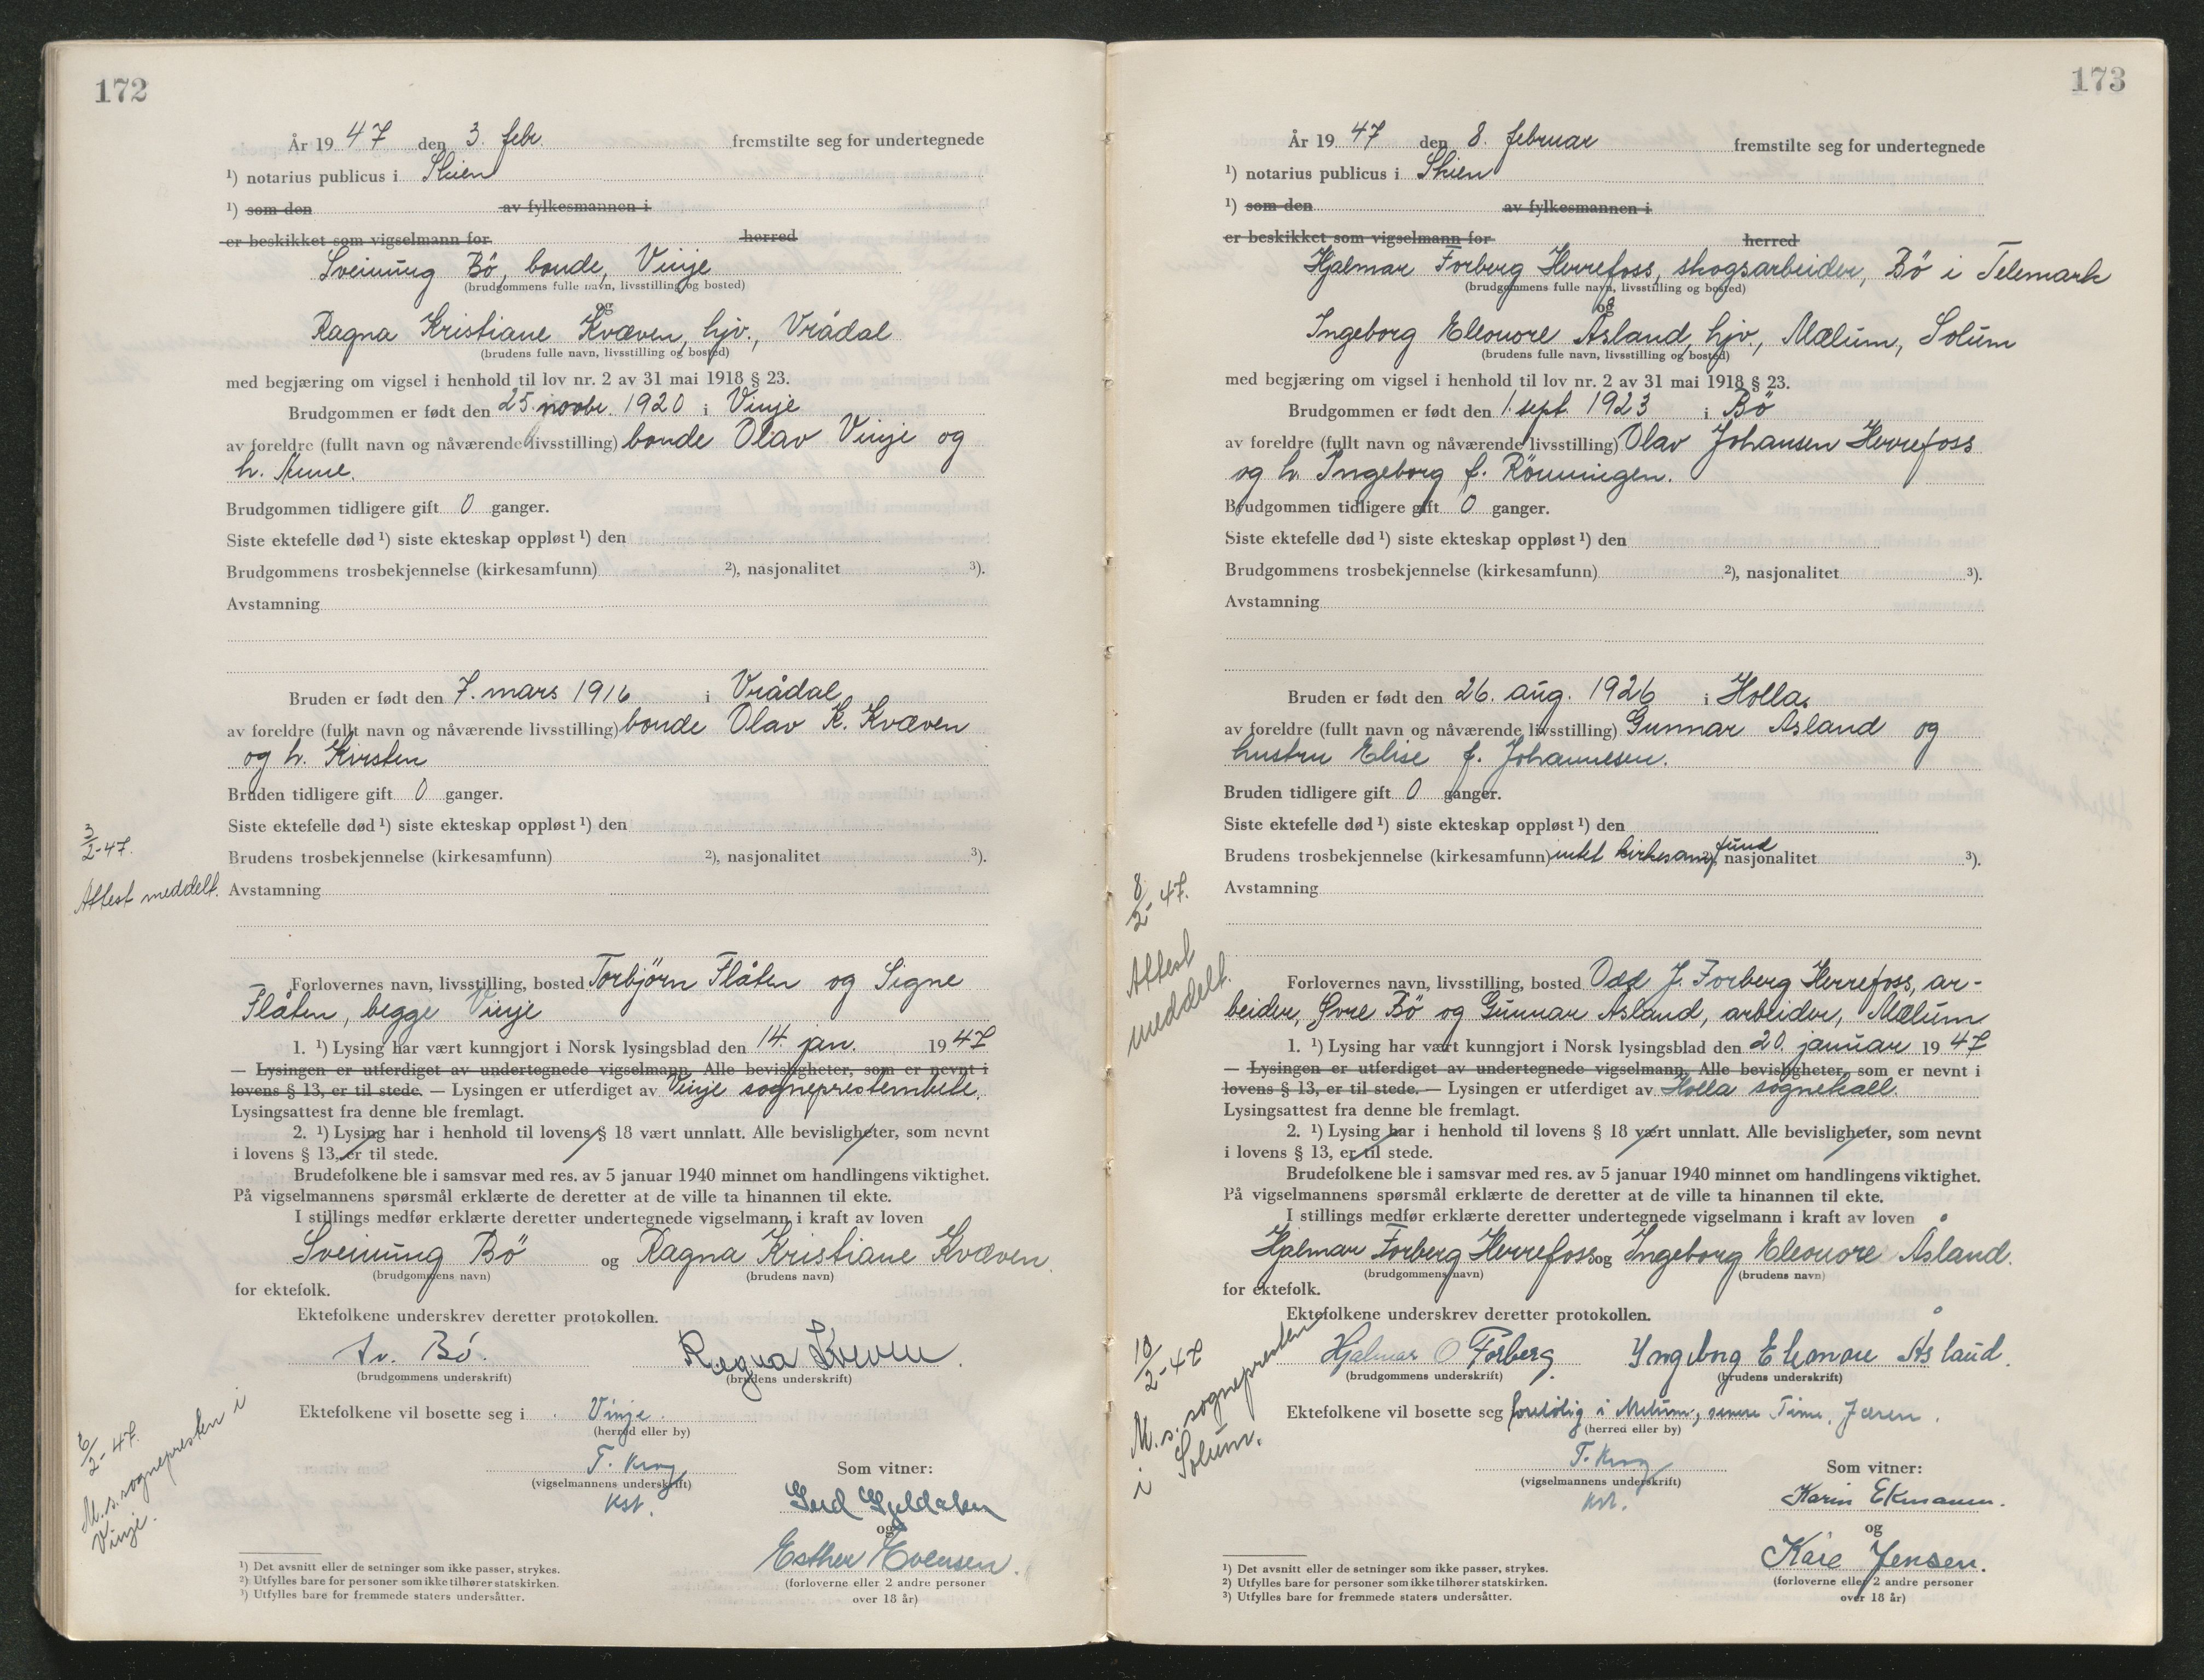 172
År 19 47 den 3. febr. fremstilte seg for undertegnede
¹) notarius publicus i Skien
¹) som den av fylkesmannen i
er beskikket som vigselmann for herred
Sveinung Bö, bonde, Vinje
(brudgommens fulle navn, livsstilling og bosted)
og
Ragna Kristiane Kvæven, hjv., Vrådal
(brudens fulle navn, livsstilling og bosted)
med begjæring om vigsel i henhold til lov nr. 2 av 31 mai 1918 § 23.
Brudgommen er født den 25. novbr. 1920 i Vinje
av foreldre (fullt navn og nåværende livsstilling) bonde Olav Vinje og
h. Anne.
Brudgommen tidligere gift 0 ganger.
Siste ektefelle død ¹) siste ekteskap oppløst ¹) den
Brudgommens trosbekjennelse (kirkesamfunn) ²), nasjonalitet ³).
Avstamning
Bruden er født den 7. mars 1916 i Vrådal
av foreldre (fullt navn og nåværende livsstilling) bonde Olav K. Kvæven
og h. Kirsten
Bruden tidligere gift 0 ganger.
Siste ektefelle død ¹) siste ekteskap oppløst ¹) den
Brudens trosbekjennelse (kirkesamfunn) ²), nasjonalitet ³).
3/2-47.
Attest meddelt.
Avstamning
Forlovernes navn, livsstilling, bosted Torbjörn Flåten og Signe
Flåten, begge Vinje
1. ¹) Lysing har vært kunngjort i Norsk lysingsblad den 14. jan. 19 47
— Lysingen er utferdiget av undertegnede vigselmann. Alle bevisligheter, som er nevnt i
lovens § 13, er til stede. — Lysingen er utferdiget av Vinje sogneprestembete
Lysingsattest fra denne ble fremlagt.
2. ¹) Lysing har i henhold til lovens § 18 vært unnlatt. Alle bevisligheter, som nevnt
i lovens § 13, er til stede.
Brudefolkene ble i samsvar med res. av 5 januar 1940 minnet om handlingens viktighet.
På vigselmannens spørsmål erklærte de deretter at de ville ta hinannen til ekte.
I stillings medfør erklærte deretter undertegnede vigselmann i kraft av loven
Sveinung Bö og Ragna Kristiane Kvæven.
(brudgommens navn) (brudens navn)
for ektefolk.
Ektefolkene underskrev deretter protokollen.
Sv. Bö. Ragna Kvæven.
(brudgommens underskrift) (brudens underskrift)
Ektefolkene vil bosette seg i Vinje.
(herred eller by)
6/2-47.
M.s. sognepresten i
Vinje.
T. Krog
(vigselmannens underskrift)
kst.
Som vitner:
Gerd Gyldalen
og
Esther Evensen.
(forloverne eller 2 andre personer
over 18 år)
¹) Det avsnitt eller de setninger som ikke passer, strykes.
²) Utfylles bare for personer som ikke tilhører statskirken.
³) Utfylles bare for fremmede staters undersåtter.
173
År 19 47 den 8. februar fremstilte seg for undertegnede
¹) notarius publicus i Skien
¹) som den av fylkesmannen i
er beskikket som vigselmann for herred
Hjalmar Forberg Herrefoss, skogsarbeider, Bö i Telemark
(brudgommens fulle navn, livsstilling og bosted)
og
Ingeborg Eleonore Åsland, hjv., Mælum, Solum
(brudens fulle navn, livsstilling og bosted)
med begjæring om vigsel i henhold til lov nr. 2 av 31 mai 1918 § 23.
Brudgommen er født den 1. sept. 1923 i Bö
av foreldre (fullt navn og nåværende livsstilling) Olav Johansen Herrefoss
og h. Ingeborg f. Rönningen.
Brudgommen tidligere gift 0 ganger.
Siste ektefelle død ¹) siste ekteskap oppløst ¹) den
Brudgommens trosbekjennelse (kirkesamfunn) ²), nasjonalitet ³).
Avstamning
Bruden er født den 26. aug. 1926 i Holla.
av foreldre (fullt navn og nåværende livsstilling) Gunnar Åsland og
hustru Elise f. Johannesen.
Bruden tidligere gift 0 ganger.
Siste ektefelle død ¹) siste ekteskap oppløst ¹) den
Brudens trosbekjennelse (kirkesamfunn) intet kirkesamfund ²), nasjonalitet ³).
Avstamning
8/2-47.
Attest
meddelt.
Forlovernes navn, livsstilling, bosted Odd J. Forberg Herrefoss, ar-
beider, Øvre Bö og Gunnar Åsland, arbeider, Mælum
1. ¹) Lysing har vært kunngjort i Norsk lysingsblad den 20. januar 19 47
— Lysingen er utferdiget av undertegnede vigselmann. Alle bevisligheter, som er nevnt i
lovens § 13, er til stede. — Lysingen er utferdiget av Holla sognekall.
Lysingsattest fra denne ble fremlagt.
2. ¹) Lysing har i henhold til lovens § 18 vært unnlatt. Alle bevisligheter, som nevnt
i lovens § 13, er til stede.
Brudefolkene ble i samsvar med res. av 5 januar 1940 minnet om handlingens viktighet.
På vigselmannens spørsmål erklærte de deretter at de ville ta hinannen til ekte.
I stillings medfør erklærte deretter undertegnede vigselmann i kraft av loven
Hjalmar Forberg Herrefoss og Ingeborg Eleonore Åsland.
(brudgommens navn) (brudens navn)
for ektefolk.
Ektefolkene underskrev deretter protokollen.
Hjalmar O Forberg Ingeborg Eleonore Åsland.
(brudgommens underskrift) (brudens underskrift)
Ektefolkene vil bosette seg foreløbig i Melum, senere Time, Jæren.
(herred eller by)
10/2-47
M.s. sognepresten
i Solum.
T. Krog
(vigselmannens underskrift)
kst.
Som vitner:
Karin Ekmann.
og
Kåre Jensen.
(forloverne eller 2 andre personer
over 18 år)
¹) Det avsnitt eller de setninger som ikke passer, strykes.
²) Utfylles bare for personer som ikke tilhører statskirken.
³) Utfylles bare for fremmede staters undersåtter.